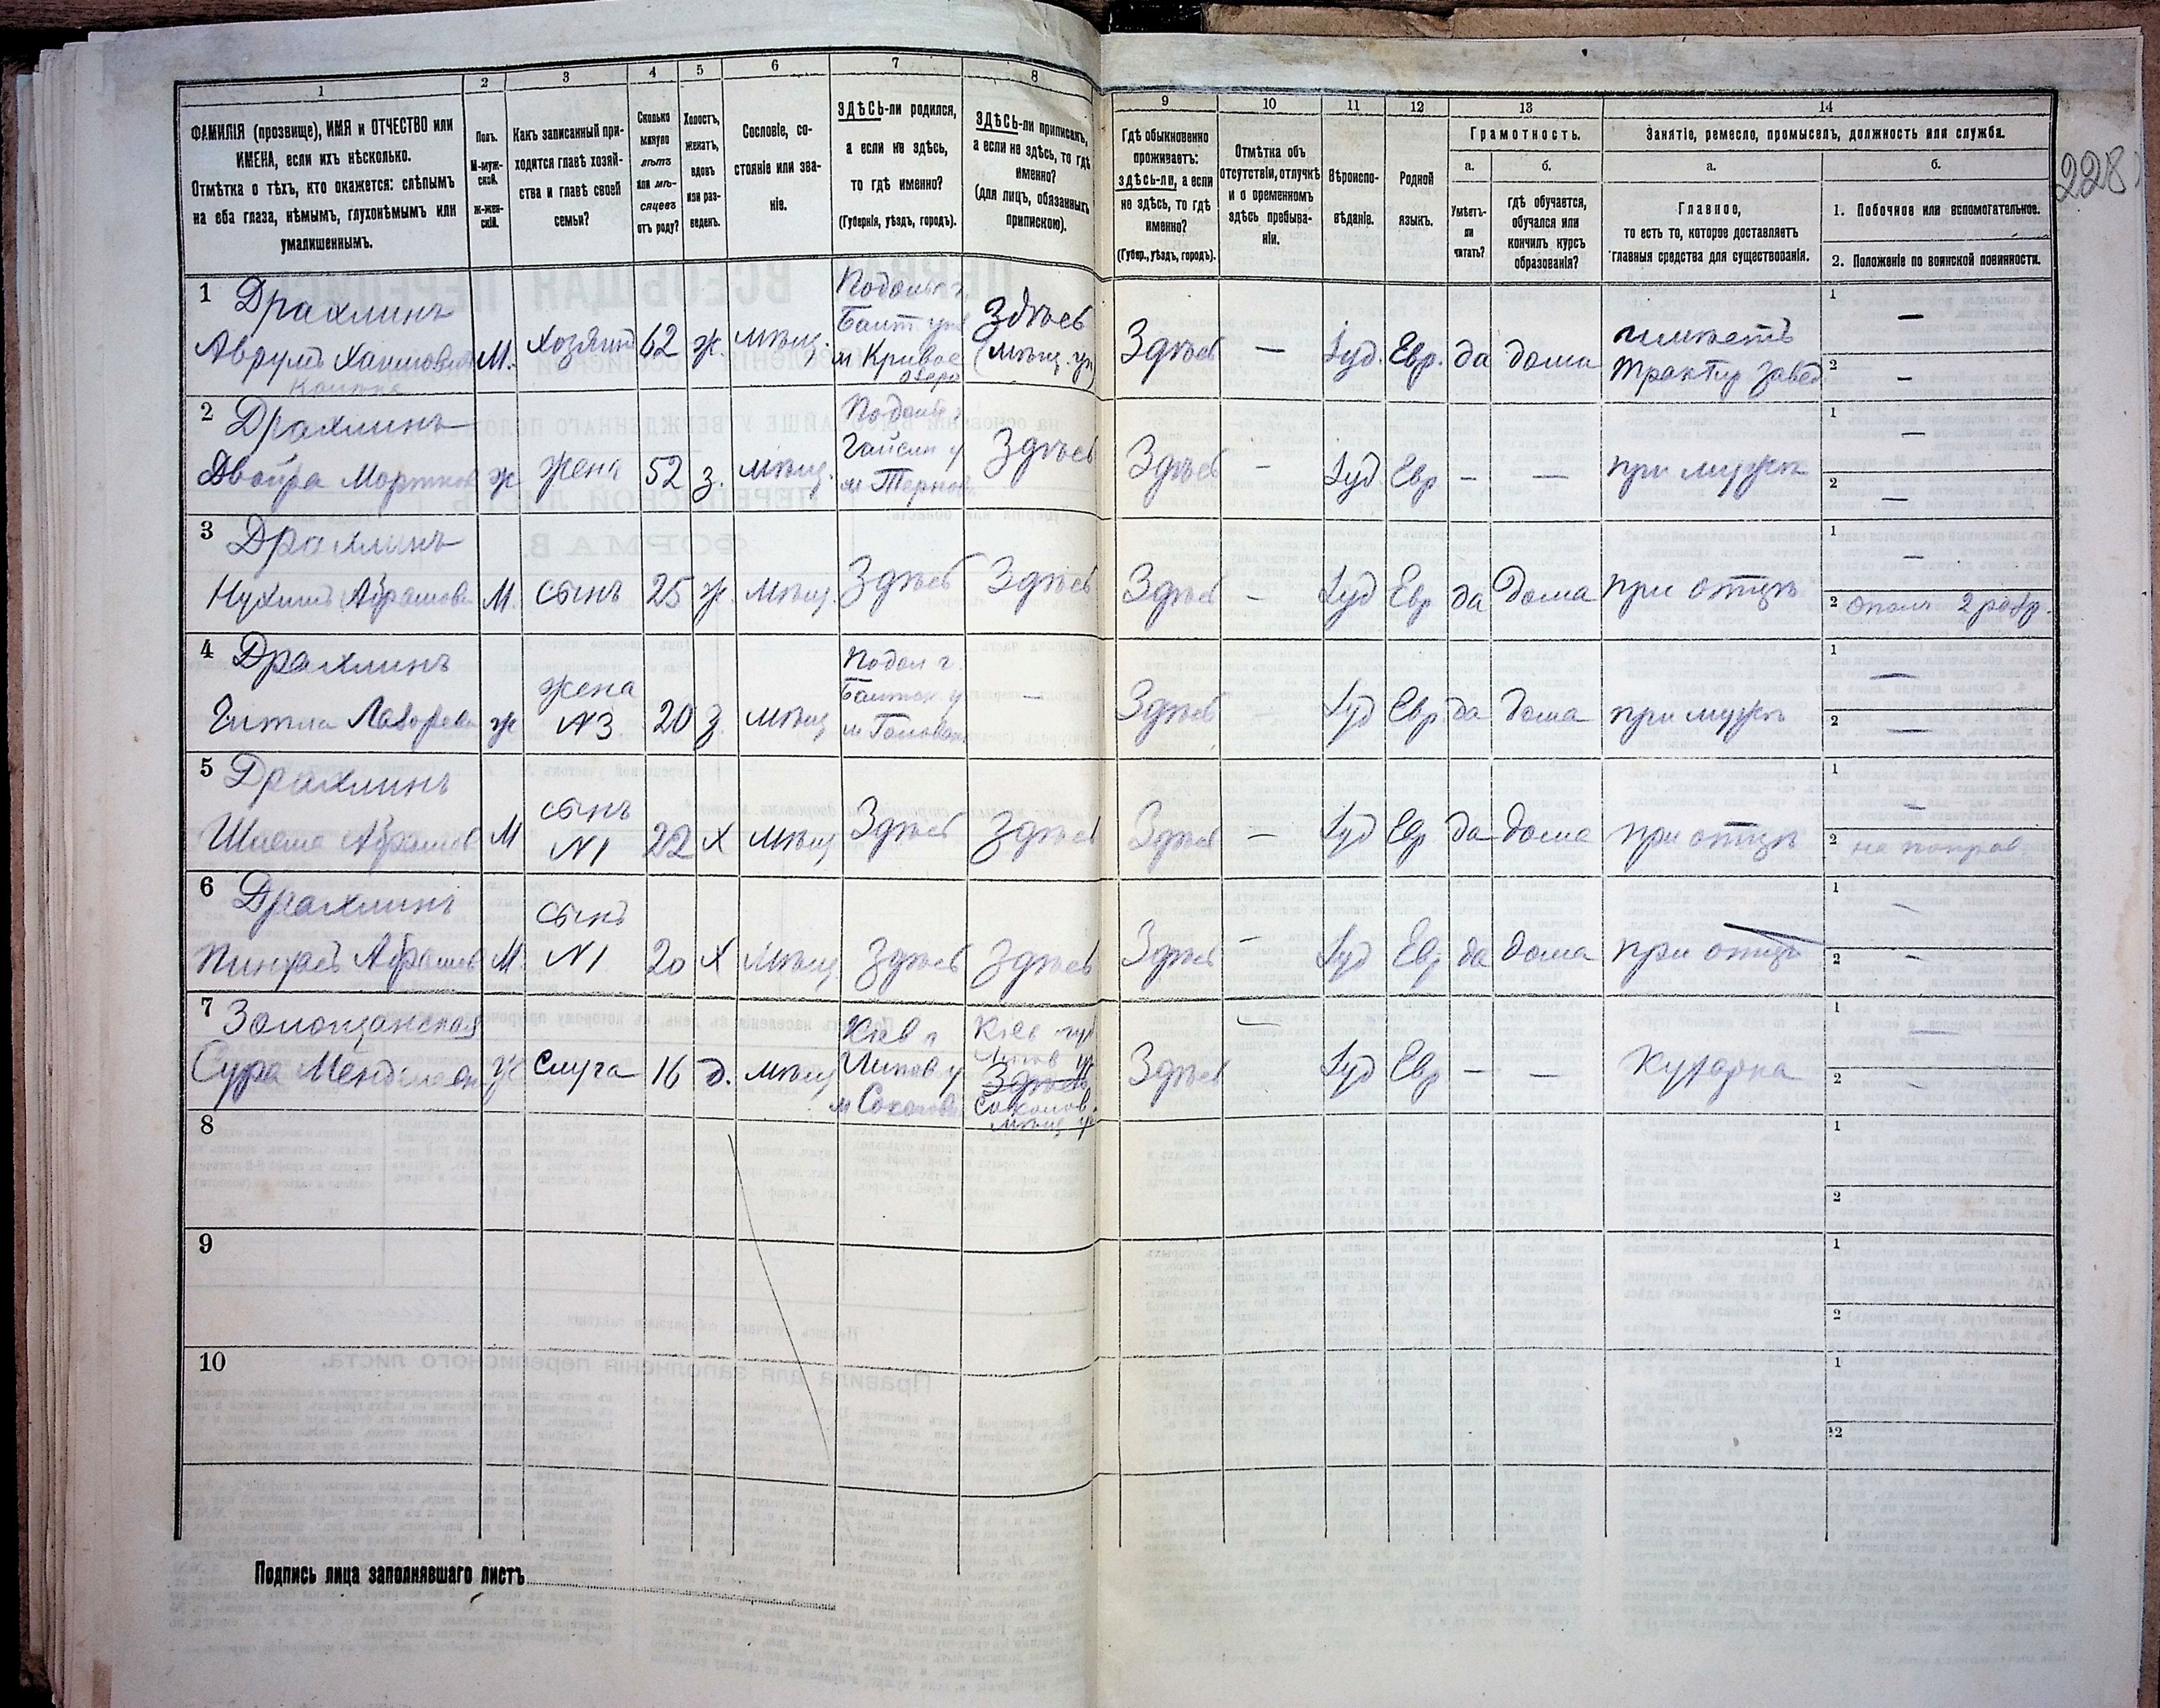 1
2
3
4
5
6
7
8
ФАМИЛІЯ (прозвище), ИМЯ и ОТЧЕСТВО или
ИМЕНА, если ихъ нѣсколько.
Отмѣтка о тѣхъ, кто окажется: слѣпымъ
на оба глаза, нѣмымъ, глухонѣмымъ или
умалишеннымъ.
Полъ.
М-муж-
ской.
ж-жен-
скій.
Какъ записанный при-
ходится главѣ хозяй-
ства и главѣ своей
семьи?
Сколько
минуло
лѣтъ
или мѣ-
сяцевъ
отъ роду?
Холостъ,
женатъ,
вдовъ
или раз-
веденъ.
Сословіе, со-
стояніе или зва-
ніе.
ЗДѢСЬ-ли родился,
а если не здѣсь,
то гдѣ именно?
(Губернія, уѣздъ, городъ).
ЗДѢСЬ-ли приписанъ,
а если не здѣсь, то гдѣ
именно?
(для лицъ, обязанныхъ
припискою).
9
10
11
12
13
14
Гдѣ обыкновенно
проживаетъ:
здѣсь-ли, а если
не здѣсь, то гдѣ
именно?
(Губер., уѣздъ, городъ).
Отмѣтка объ
отсутствіи, отлучкѣ
и о временномъ
здѣсь пребыва-
ніи.
Вѣроиспо-
вѣданіе.
Родной
языкъ.
Грамотность.
а.
б.
Умѣетъ-
ли
читать?
гдѣ обучается,
обучался или
кончилъ курсъ
образованія?
Занятіе, ремесло, промыселъ, должность или служба.
а.
б.
Главное,
то есть то, которое доставляетъ
главныя средства для существованія.
1. Побочное или вспомогательное.
2. Положеніе по воинской повинности.
228
1 Драхлинъ
Аврумъ Хаимовичъ М. хозяинъ 62 ж. мѣщ.
Подольск г.
Балт. у.
м Кривое
Озеро
Здѣсь
(мѣщ. уп)
Здѣсь — Іуд. Евр. да дома
имѣетъ
трактир завед
1 —
2 —
2 Драхлинъ
Двойра Мортков ж жена 52 з. мѣщ.
Подольс г
Гайсин у
м Тернов
Здѣсь
Здѣсь — Іуд Евр — — при мужѣ
1 —
2 —
3 Драхлинъ
Нухимъ Абрамов М. сынъ 25 ж. мѣщ. Здѣсь Здѣсь
Здѣсь — Іуд Евр да Дома при отцѣ
1 —
2 Ополч 2 разр.
4 Драхлинъ
Гитля Лазорева ж
жена
N3
20 з. мѣщ
Подол г.
Балтск у
м Голован
—
Здѣсь — Іуд Евр. да дома при мужѣ
1 —
2 —
5 Драхлинъ
Абрамов М
сынъ
N1
22 х мѣщ Здѣсь Здѣсь
Здѣсь — Іуд Евр да дома при отцѣ
1 —
2
6 Драхлинъ
Пинхасъ Абрамов М.
сынъ
N1
20 х мѣщ Здѣсь Здѣсь
Здѣсь — Іуд Евр да дома при отцѣ
1 —
2 —
7 Золотчанская
Сура Менделев ж слуга 16 д. мѣщ
Кіев г
Липов у
м Соколов
Кіев губ
Липов у
Здѣсь
Соколов.
мѣщ уп
Здѣсь — Іуд Евр — — Кухарка
1 —
2 —
8
1
2
9
1
2
10
1
2
Подпись лица заполнявшаго листъ